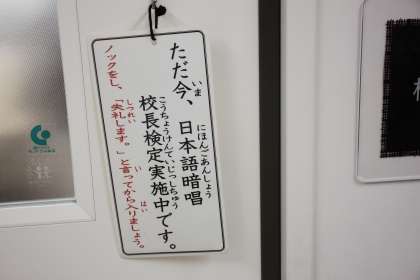 ただ今、日本語暗唱
いま にほんごあんしょう
校長検定実施中です。
こうちょうけんていじっしちゅう
ノックをし、「失礼します。」と言ってから入りましょう。
しつれい い はい